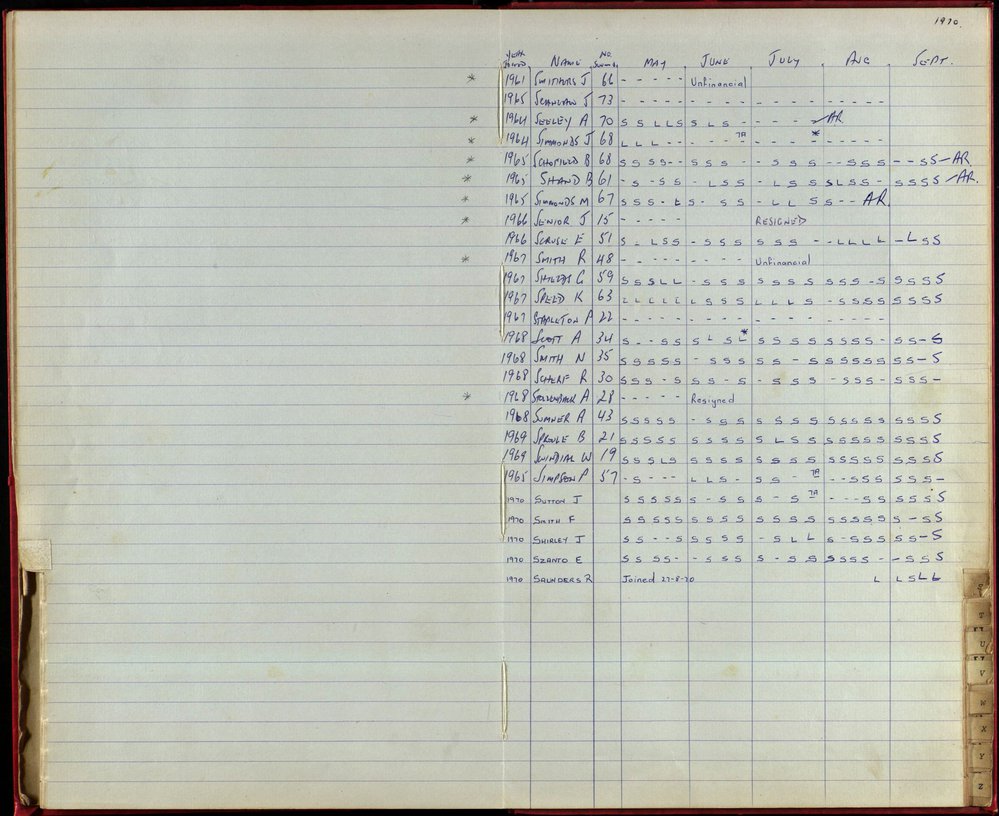 1970.
YEAR JOINED NAME NO. SWIMS MAY JUNE JULY AUG SEPT.
* 1961 SMITHERS J 66 - - - - - Unfinancial
1965 SCANLAN J 73 - - - - - - - - - - - - - - - - - -
* 1964 SEELEY A 70 S S L L S S L S - - - - - AR
* 1964 SIMMONDS J 68 L L L - - - - - TA - - - - * - - - - -
* 1965 SCHOFIELD B 68 S S S S - - S S S - - S S S - - S S S - - S S - AR.
* 1965 SHAND B 61 - S - S S - L S S - L S S S L S S - S S S S - AR.
* 1965 SIMMONDS M 67 S S S - L S - S S - L L S S - - AR
* 1966 SENIOR J 15 - - - - - RESIGNED
1966 SCRUSE E 51 S - L S S - S S S S S S - - L L L L - L S S
* 1967 SMITH R 48 - - - - - - - - - Unfinancial
1967 SHIELDS G 59 S S S L L - S S S S S S S S S S - S S S S S
1967 SPEED K 63 L L L L L L S S S L L L S - S S S S S S S S
1967 STAPLETON P 22 - - - - - - - - - - - - - - - - - -
1968 SCOTT A 34 S - - S S S L S L * S S S S S S S S - S S - S
1968 SMITH N 35 S S S S S - S S S S S - S S S S S S S S - S
1968 SCHERF R 30 S S S - S S S - S - S S S - S S S - S S S -
* 1968 A 28 - - - - - Resigned
1968 SUMNER A 43 S S S S S - S S S S S S S S S S S S S S S S
1969 SPROULE B 21 S S S S S S S S S S L S S S S S S S S S S S
1969 SWINDIAL W 19 S S S L S S S S S S S S S S S S S S S S S S
1965 SIMPSON P 57 - S - - - L L S - S S - TA - - S S S S S S -
1970 SUTTON J S S S S S S - S S S - S TA - - - S S S S S S
1970 SMITH F S S S S S S S S S S S S S S S S S S S - S S
1970 SHIRLEY J S S - - S S S S S - S L L S - S S S S S - S
1970 SZANTO E S S S S - - S S S S - S S S S S S - - S S S
1970 SAUNDERS R Joined 27-8-70 L L S L L
S
T
U
V
W
X
Y
Z